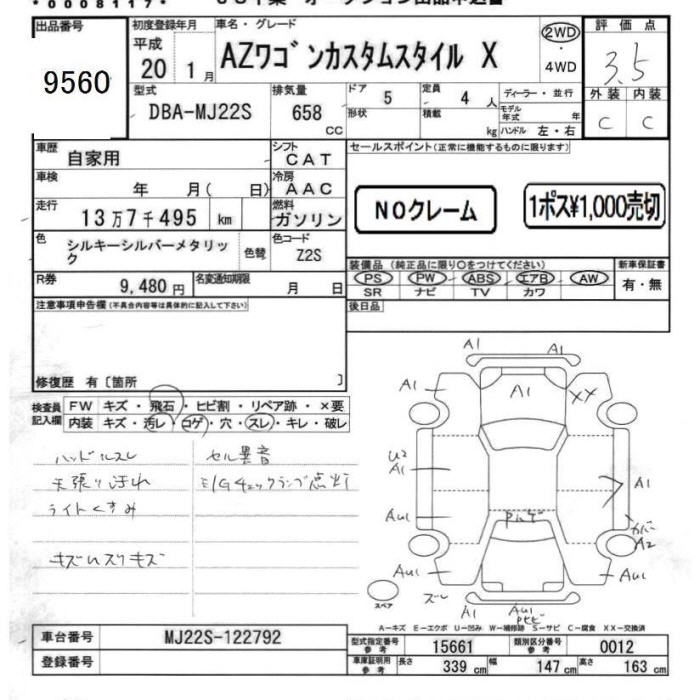 *0008117*
出品番号 9560
初度登録年月 平成 20 1月
車名・グレード AZワゴンカスタムスタイル X
2WD ・4WD
評価点 3.5
外装 内装
C C
型式 DBA-MJ22S
排気量 658 CC
ドア 5
定員 4 人
形状 積載 kg
ディーラー・並行
モデル年式 年
ハンドル 左・右
車歴 自家用
シフト CAT
車検 年 月( 日)
冷房 AAC
走行 13万7千495 km
燃料 ガソリン
色 シルキーシルバーメタリック
色替
色コード Z2S
R券 9,480円
名変通知期限 月 日
セールスポイント(正常に機能するものに限ります)
NOクレーム
1ポス¥1,000売切
装備品 (純正品に限り○をつけてください)
新車保証書
PS PW ABS エアB AW
SR ナビ TV カワ
有・無
後日品
注意事項申告欄(不具合内容等は具体的に記入して下さい)
修復歴 有〔箇所 〕
検査員記入欄
FW キズ・飛石・ヒビ割・リペア跡・×要
内装 キズ・汚レ・コゲ・穴・スレ・キレ・破レ
ハンドルスレ
セル異音
天張り汚れ
E/Gチェックランプ点灯
ライトくすみ
キズ
A1
A1
A1 A1 XX
U2
A1 A1
AU1
カバー
A2
AU1 AU1
ズレ
スペア
A1 AU1
A-キズ E-エクボ U-凹ミ W-補修跡 S-サビ C-腐食 XX-交換済
車台番号 MJ22S-122792
登録番号
型式指定番号 参考 15661
類別区分番号 参考 0012
車庫証明用 参考 長さ 339 cm 幅 147 cm 高さ 163 cm